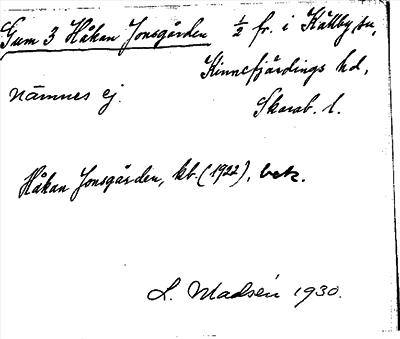 Gum 3 Håkan Jonsgården ½ fr. i Källby sn,
Kinnefjärdings hd,
nämnes ej. Skarab. l.
Håkan Jonsgården, kb. (1922), betz.
L. Madsén 1930.